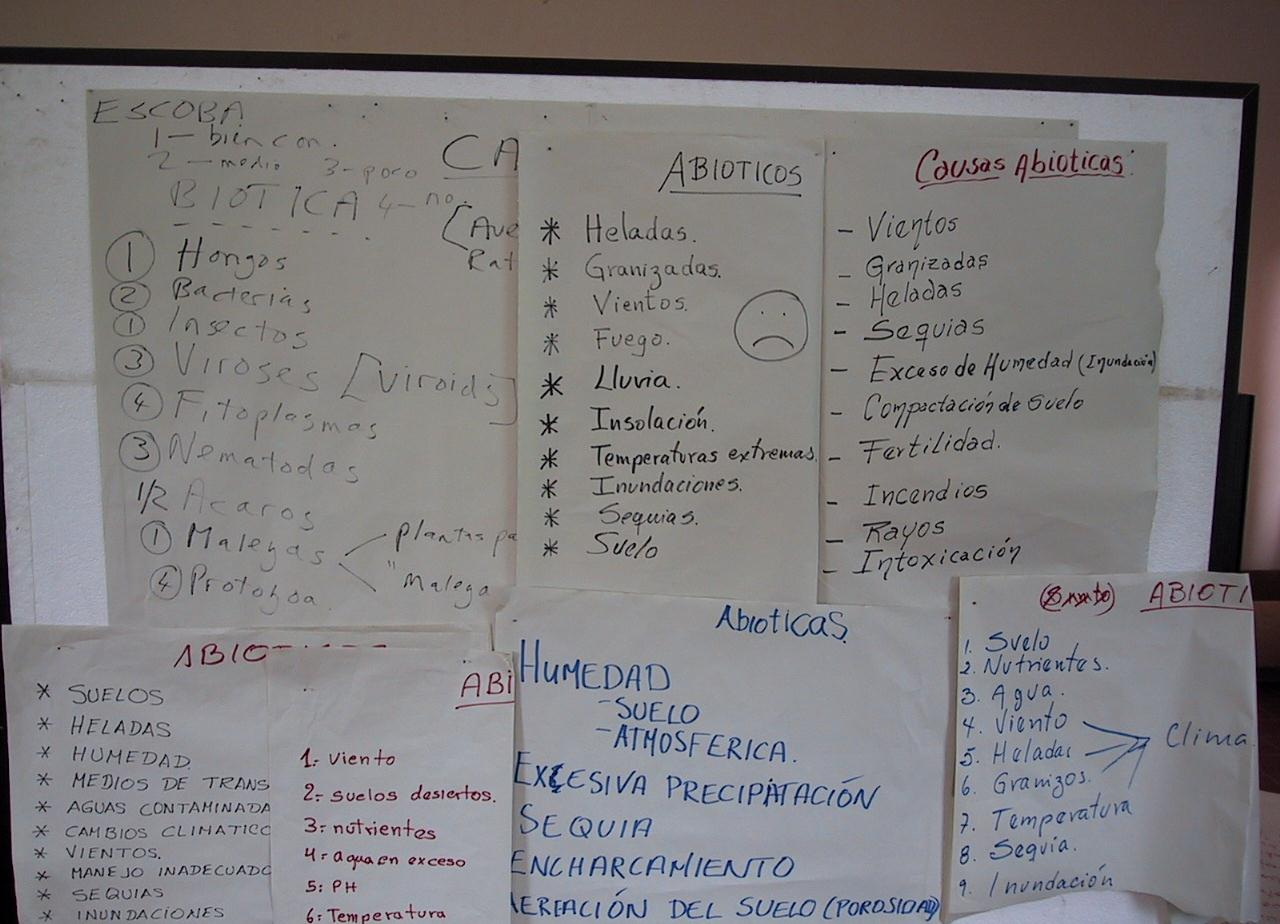 ESCOBA
1 - bien con.
2 - medio 3- poco
BIOTICA 4- no.
CA
[Ave
Rat
① Hongos
② Bacterias
① Insectos
③ Viroses [Viroids]
④ Fitoplasmas
③ Nematodas
1/2 Acaros
① Malezas
plantas pa
"Maleza
④ Protozoa
ABIOTICOS
* Heladas.
* Granizadas.
* Vientos.
* Fuego.
* Lluvia.
* Insolación.
* Temperaturas extremas.
* Inundaciones.
* Sequias.
* Suelo
Causas Abioticas:
- Vientos
- Granizadas
- Heladas
- Sequias
- Exceso de Humedad (Inundación)
- Compactación de Suelo
- Fertilidad.
- Incendios
- Rayos
- Intoxicación
ABIOT
* SUELOS
* HELADAS
* HUMEDAD.
* MEDIOS DE TRANS
* AGUAS CONTAMINADA
* CAMBIOS CLIMATICO
* VIENTOS.
* MANEJO INADECUADO
* SEQUIAS
* INUNDACIONES
ABI
1- Viento
2- suelos desiertos.
3- nutrientes
4- agua en exceso
5- PH
6- Temperatura
Abioticas.
HUMEDAD
-SUELO
-ATMOSFERICA.
EXCESIVA PRECIPITACIÓN
SEQUIA
ENCHARCAMIENTO
AEREACIÓN DEL SUELO (POROSIDAD)
ABIOTI
1. Suelo
2. Nutrientes.
3. Agua.
4. Viento
5. Heladas
6. Granizos.
Clima
7. Temperatura
8. Sequia.
9. Inundación